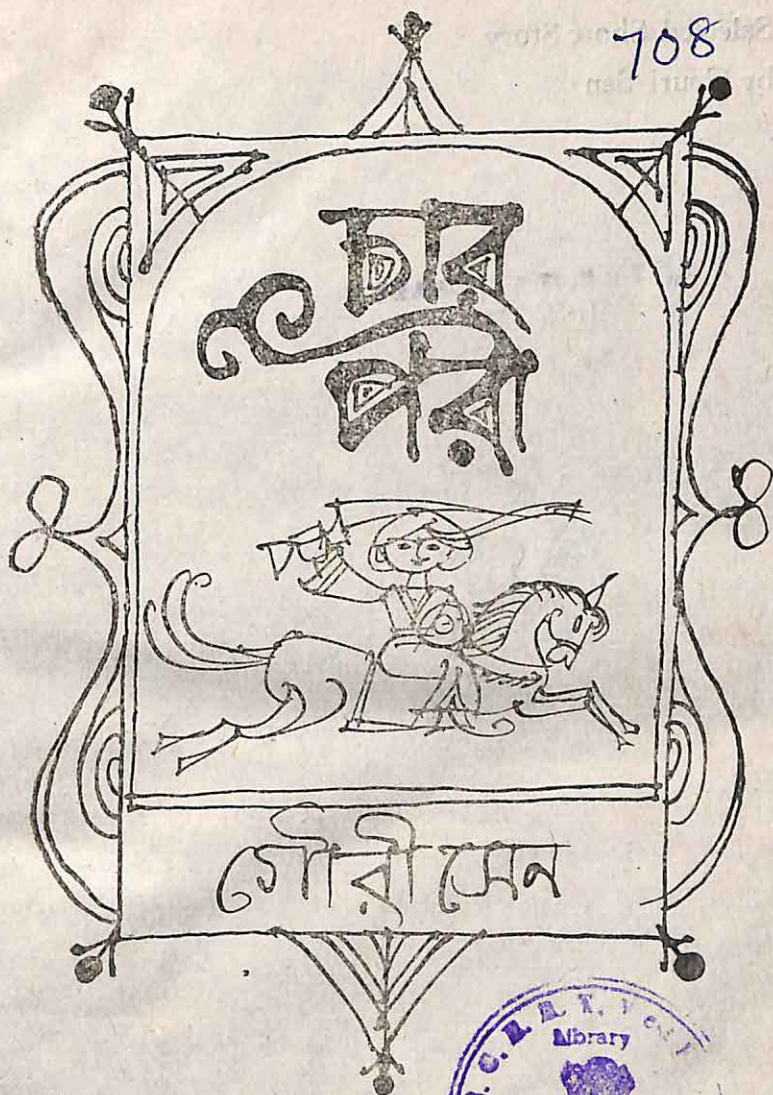 708
চার
পরী
গৌরী সেন
Library